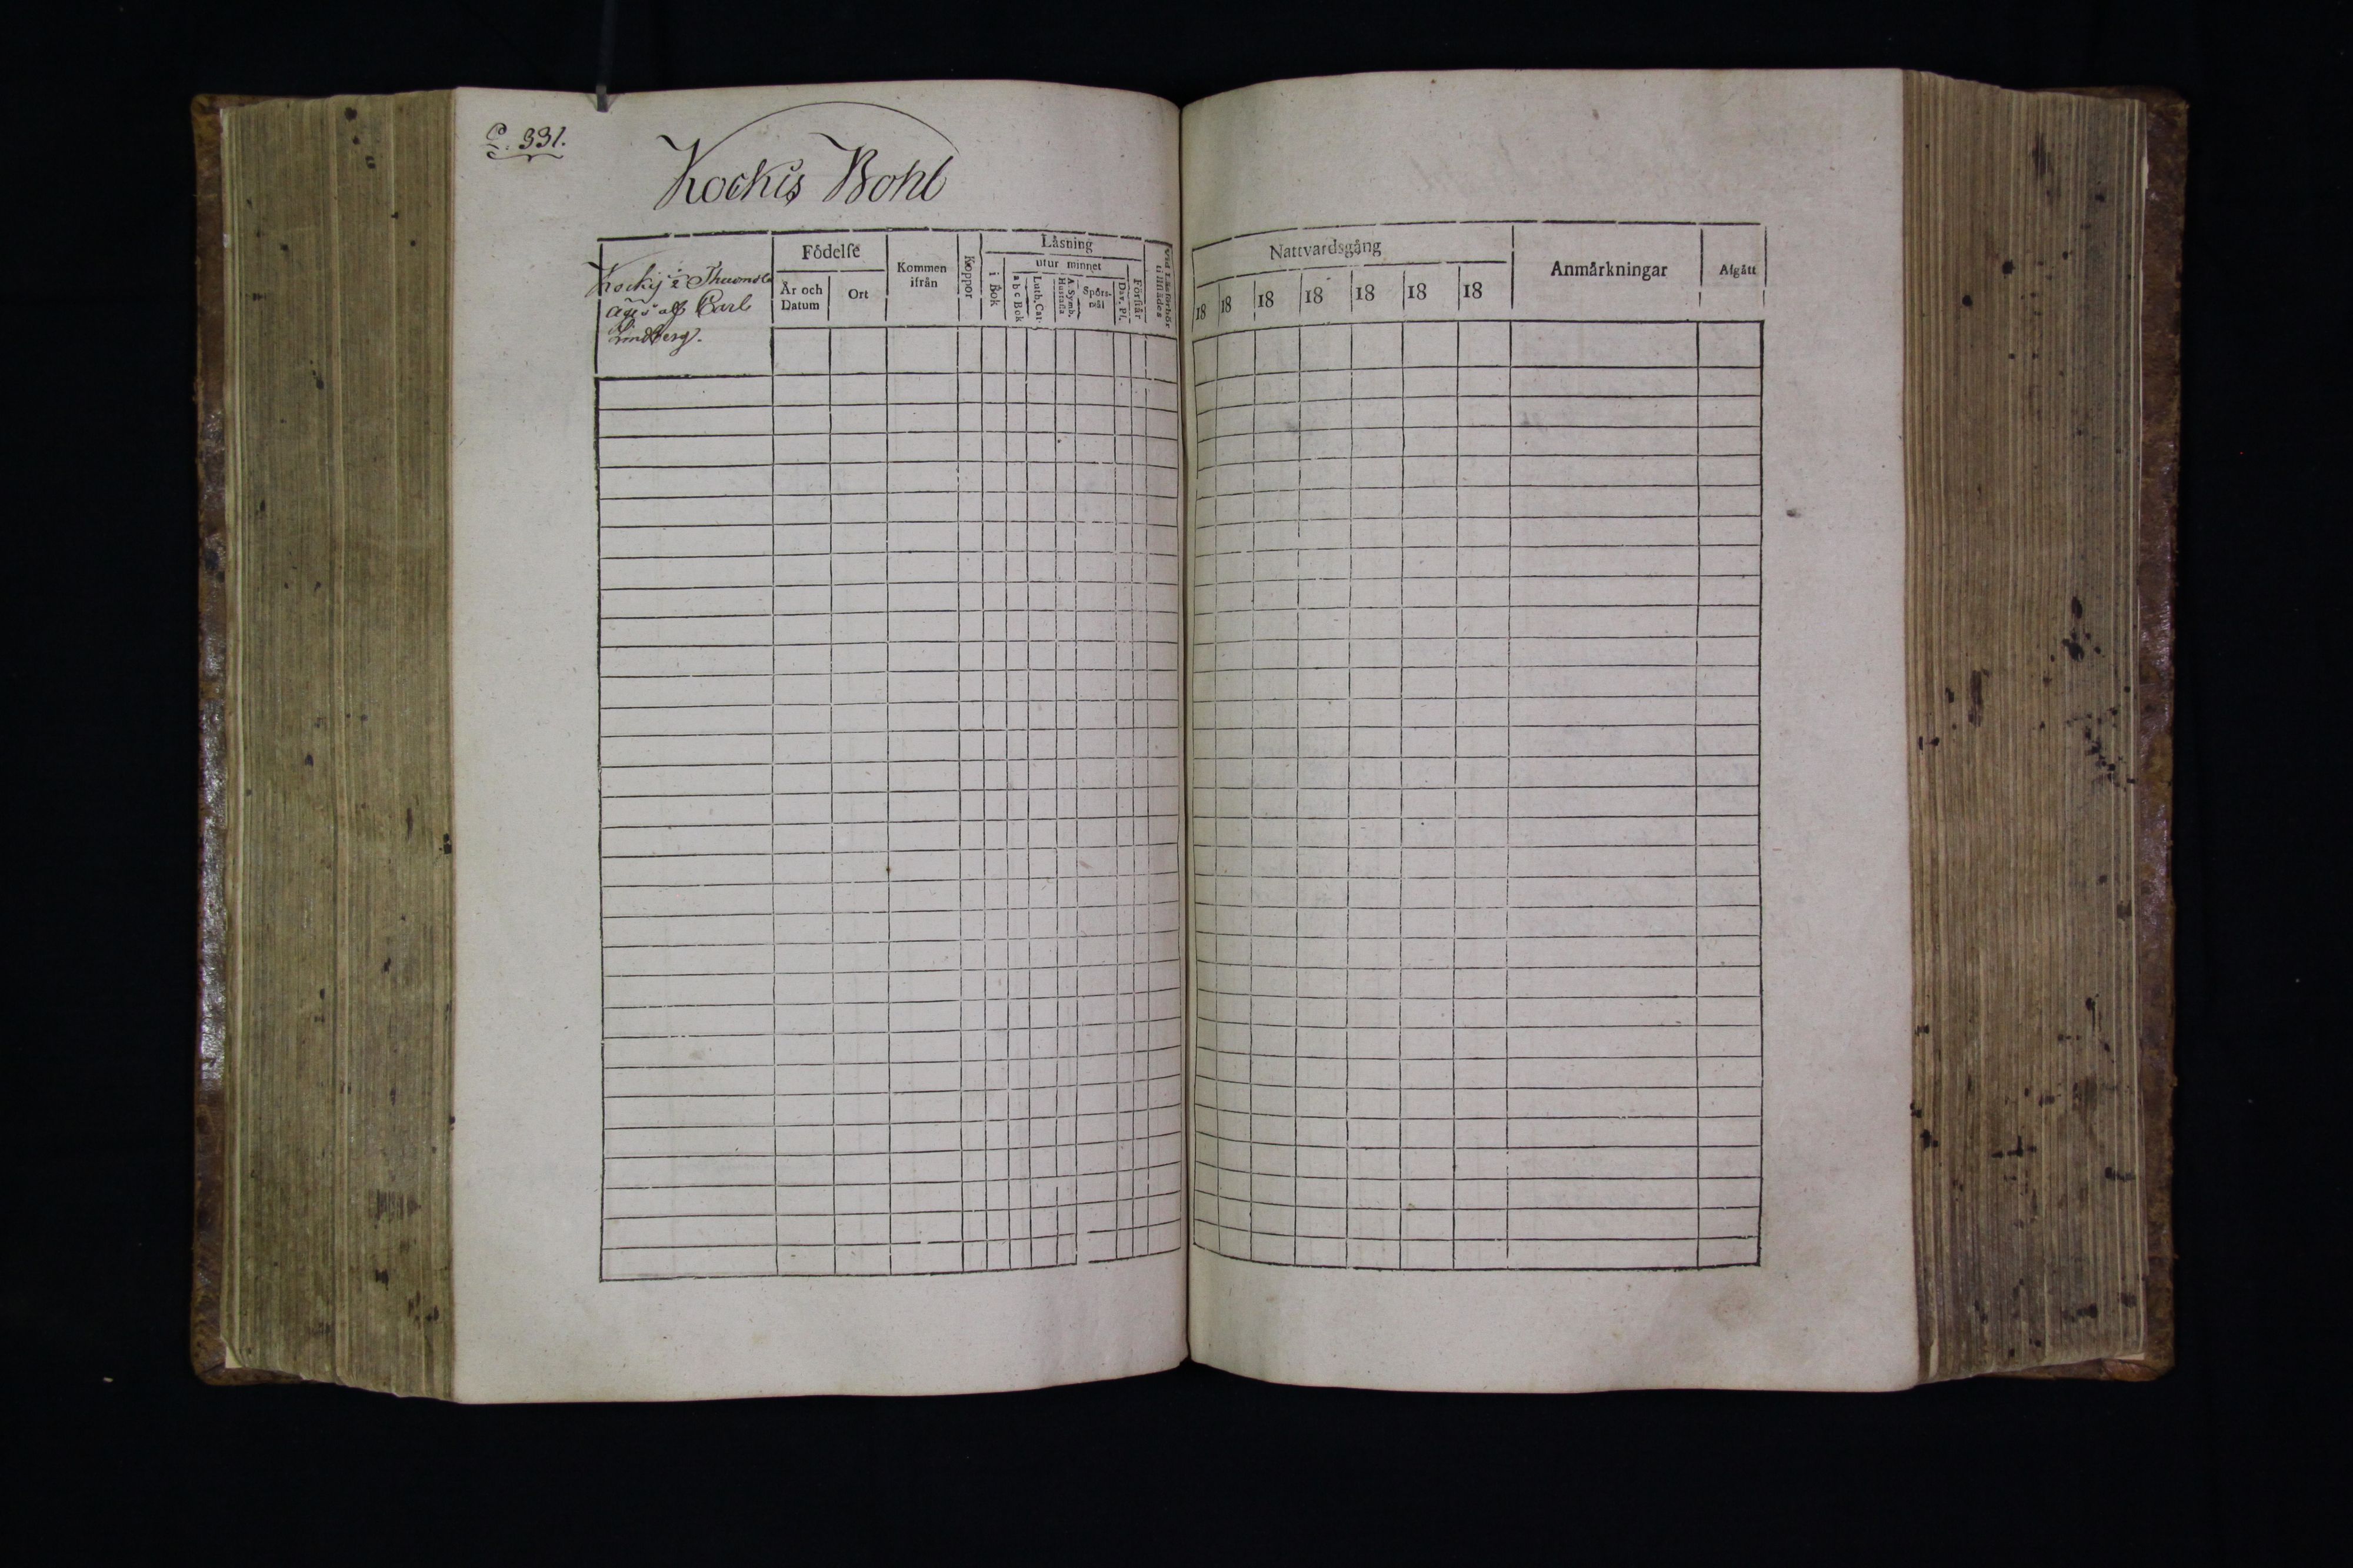 P: 331.
Kockis Bohl
Kockis i Thusmola
äges af Carl
Lindberg.
Födelse
År och
Datum
Ort
Kommen
ifrån
Koppor
Läsning
i Bok
utur minnet
a b c Bok
Luth. Cat.
A. Symb.
Hustafla
Spörs-
mål
Dav. Ps.
Förstår
Vid Läsförhör
tillstädes
Nattvardsgång
18 18 18 18 18 18 18
Anmärkningar
Afgått